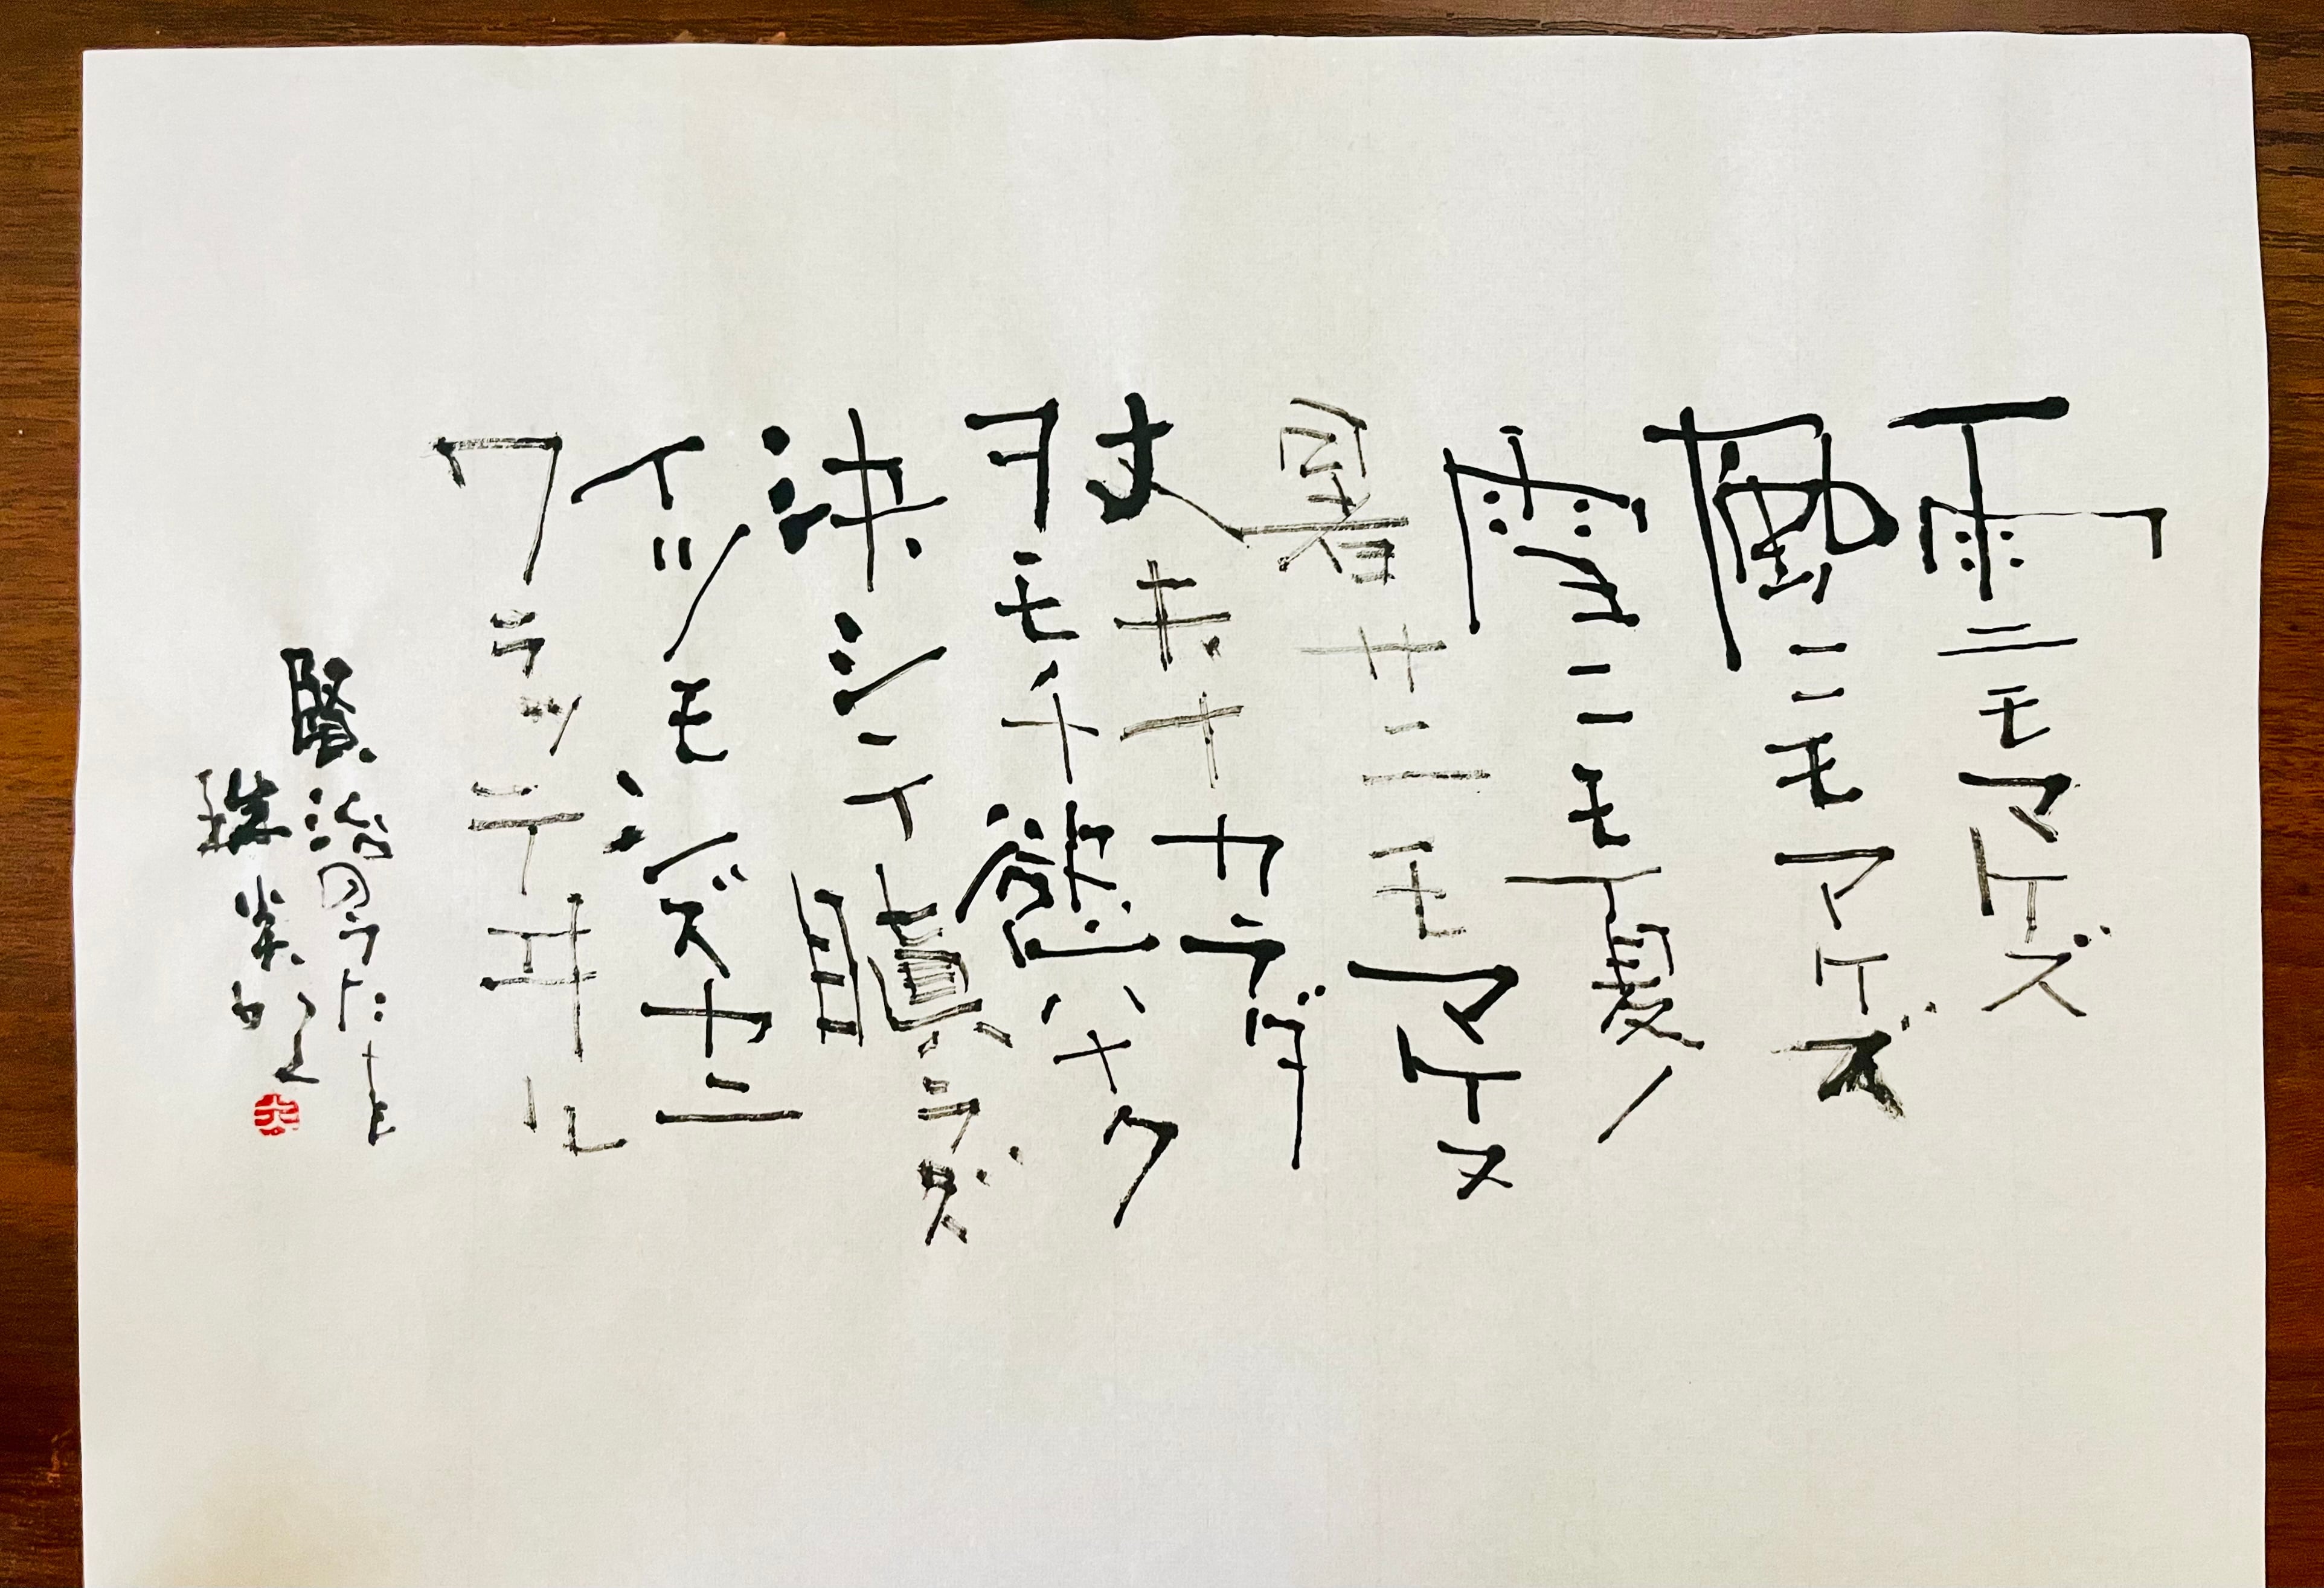 雨ニモマケズ
風ニモマケズ
雪ニモ夏ノ
暑サニモマケヌ
丈夫ナカラダ
ヲモチ慾ハナク
決シテ瞋ラズ
イツモシズカニ
ワラッテヰル
賢治